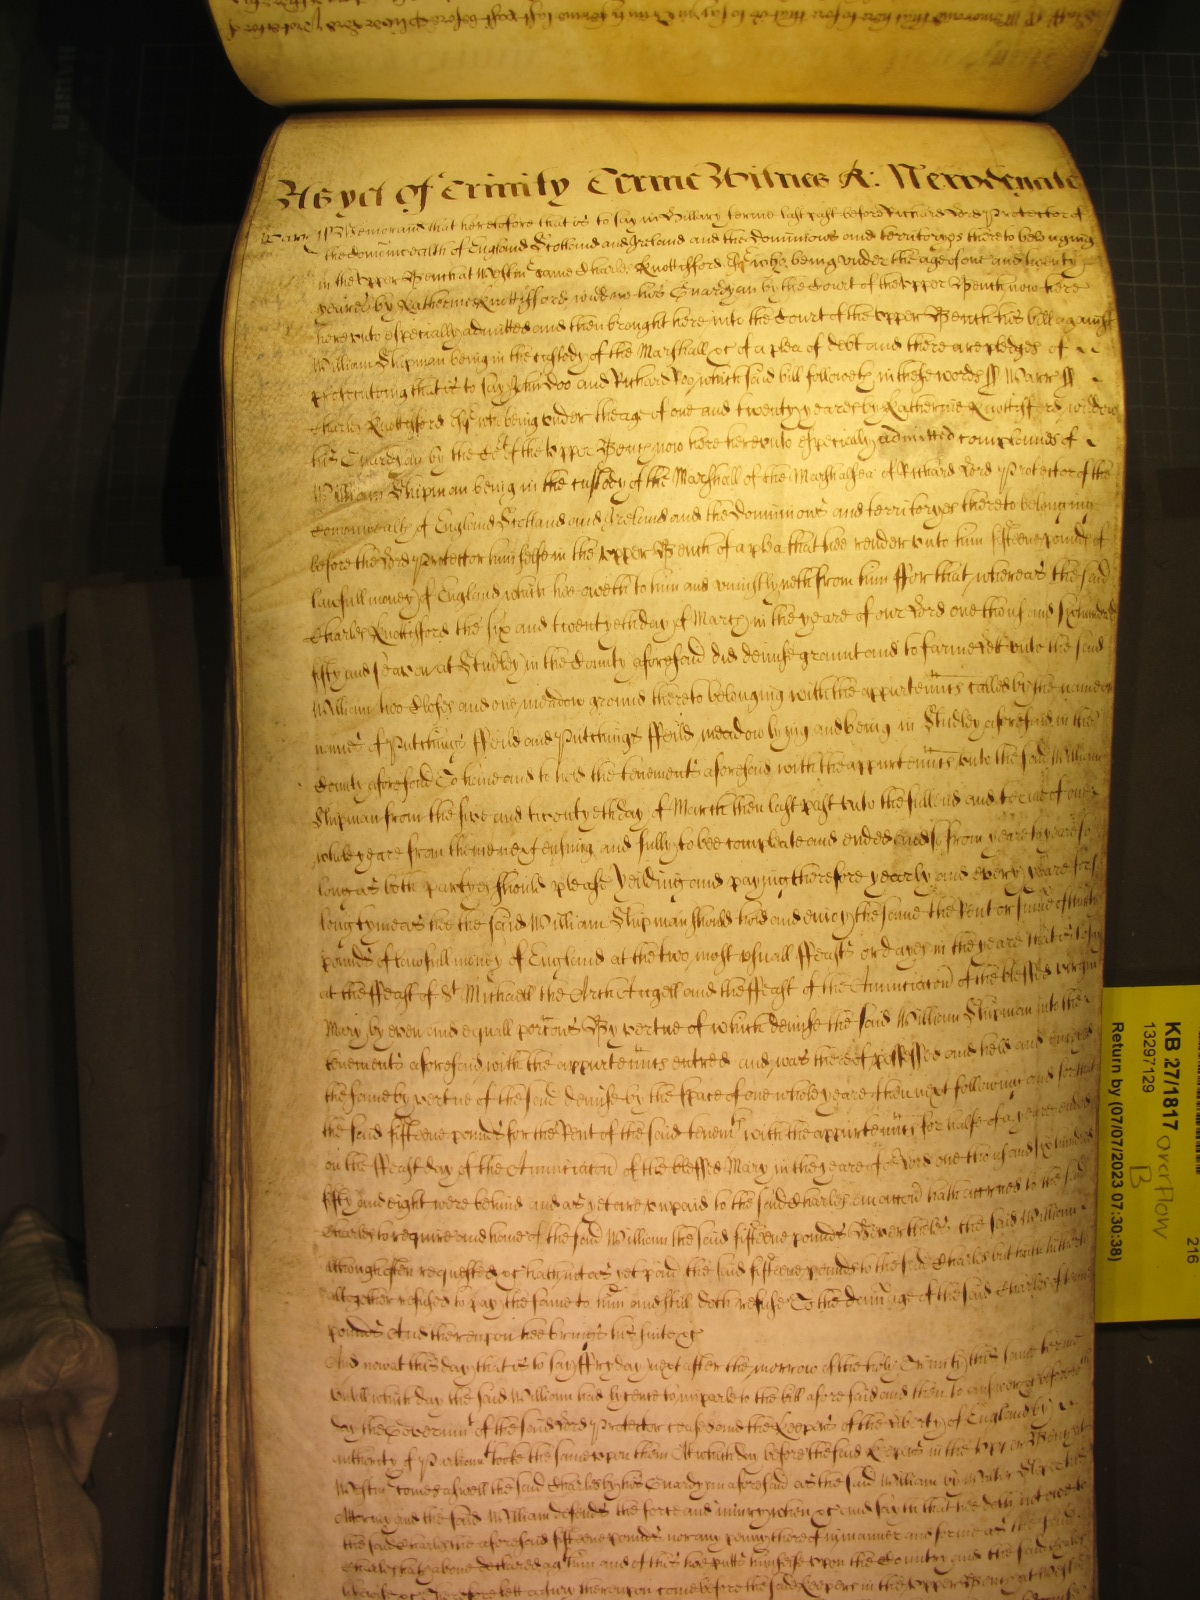 As yet of Trinity Terme Witnes R: Newdegate
Warr ss Memorand that heretofore that is to say in Hillary terme last past before Richard Lord Protector of
the Comonwealth of England Scotland and Ireland and the Dominions and territoryes thereto belonging
in the upper Bench at Westm came Charles Knottisford who being under the age of one and twenty
yeares by Katherine Knottisford widdow his Guardyan by the Court of the upper Bench now here
hereunto especially admitted and then brought here into the Court of the upper Bench his bill against
William Shipman being in the custody of the Marshall &c of a plea of debt and there are pledges of
prosecuting that is to say John Doo and Richard Roo which said bill followeth in these words ss Warr ss
Charles Knottisford who being under the age of one and twenty yeares by Katherine Knottisford widdow
his Guardyan by the Co of the upper Bench now here hereunto especially admitted complaines of
William Shipman being in the custody of the Marshall of the Marshalsea of Richard Lord Protector of the
Comonwealth of England Scotland and Ireland and the Dominions and territoryes thereto belonging
before the Lord Protector himselfe in the upper Bench of a plea that hee render unto him fifteene pounds of
lawfull money of England which hee oweth to him and uniustly deteyneth from him ffor that whereas the said
Charles Knottisford the six and twentyeth day of March in the yeare of our Lord one thousand six hundred
fifty and seaven at Studley in the County aforesaid did demise graunt and to farme lett unto the said
William two Closes and one meadow ground thereto belonging with the appurtenncs called by the name or
names of Hitchings ffeild and Hitchings ffeild meadow lying and being in Studley aforesaid in the
County aforesaid To have and to hold the tenements aforesaid with the appurtenncs unto the said William
Shipman from the five and twentyeth day of March then last past unto the full end and terme of one
whole yeare from thence next ensuing and fully to bee compleate and ended and so from yeare to yeare so
long as both partyes should please Yeilding and paying therefore yearly and every yeare for so
long tyme as hee the said William Shipman should hold and enioy the same the Rent or summe of thirty
pounds of lawfull money of England at the two most usuall ffeasts or dayes in the yeare that is to say
at the ffeast of St Michaell the Arch Angell and the ffeast of the Annunciacon of the blessed virgin
Mary by even and equall porcons By vertue of which demise the said William Shipman into the
tenements aforesaid with the appurtenncs entred and was thereof possessed and held and enioyed
the same by vertue of the said demise by the space of one whole yeare then next following and for that
the said fifteene pounds for the Rent of the said tenemts with the appurtenncs for halfe of a yeare ended
on the ffeast day of the Annunciacon of the blessed Mary in the yeare of or Lord one thousand six hundred
fifty and eight were behind and as yet are unpaid to the said Charles an accon hath accrued to the said
Charles to require and have of the said William the said fifteene pounds Neverthelesse the said William
although often requested &c hath not as yet paid the said fifteene pounds to the said Charles but hath hitherto
altogether refused to pay the same to him and still doth refuse To the damage of the said Charles of
pounds And thereupon hee brings his suite &c
And now at this day that is to say ffryday next after the morrow of the holy Trinity this same terme
untill which day the said William had lycence to imparle to the bill aforesaid and then to answere &c before
day the Governmt of the said Lord Protector ceased and the Keepers of the liberty of England by
authority of Parliamt tooke the same upon them At which day before the said Keepers in the upper Bench at
Westm comes aswell the said Charles by his Guardyan aforesaid as the said William by Attorny and the said William defends the force and iniury when &c and sayth that hee doth not owe to
the said Charles the aforesaid fifteene pounds nor any penny thereof in manner and forme as the said
Charles hath above declared agt him and of this hee putts himselfe upon the Country and the said Charles
likewise &c Therefore lett a Jury thereupon come before the said Keepers in the upper Bench at Westm
KB 27/1817 overflow B
13297129
216
Return by (07/07/2023 07:30:38)